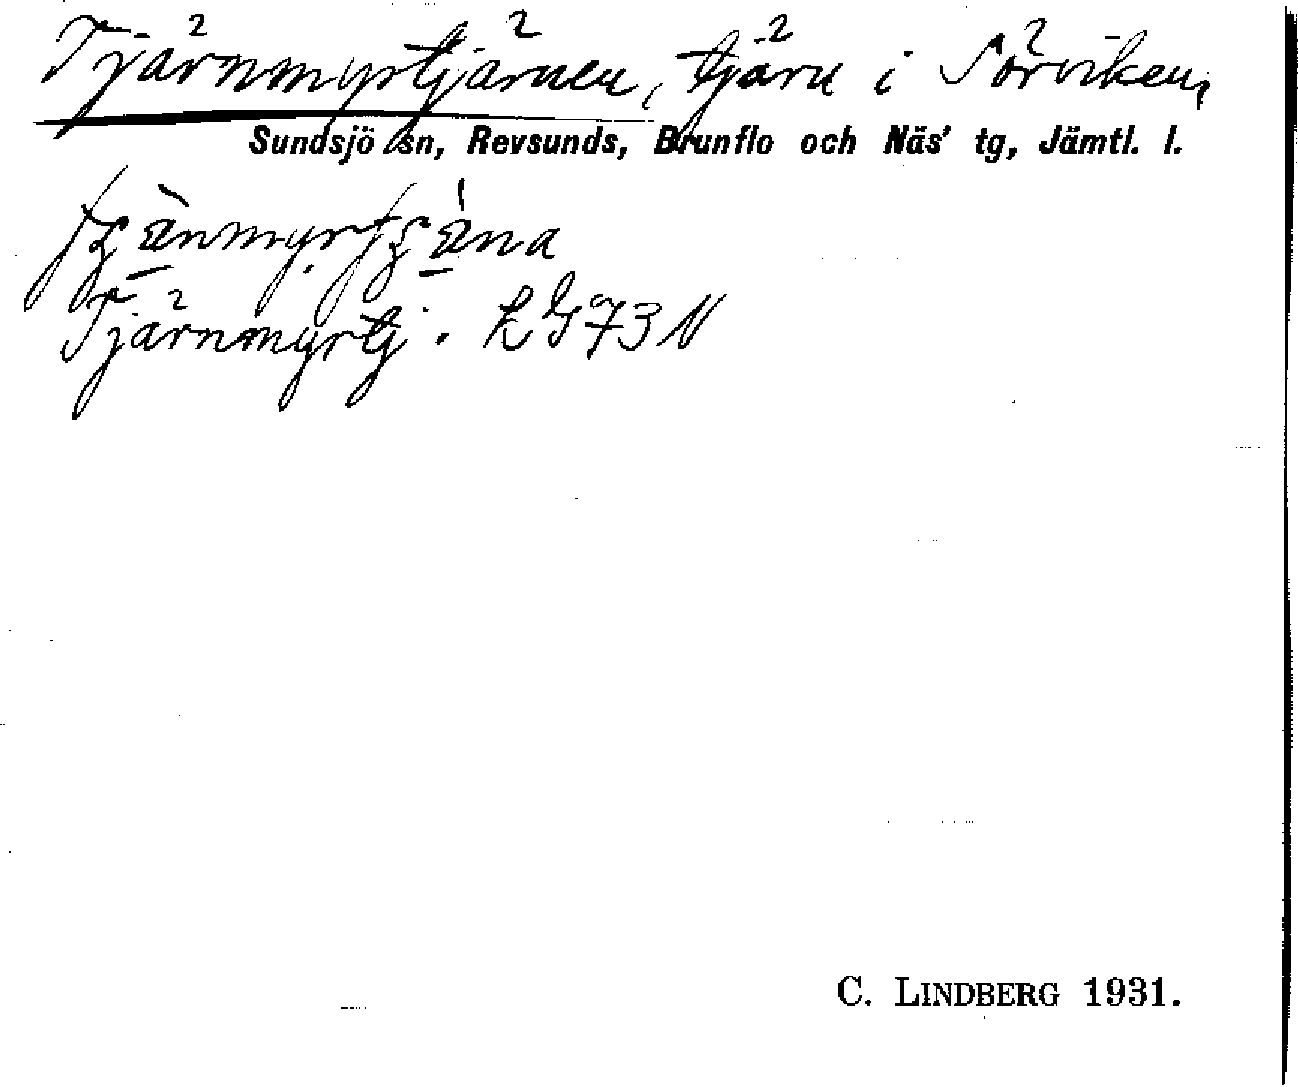 Tjärnmyrtjärnen, tjärn i Sörviken,
Sundsjö sn, Revsunds, Brunflo och Näs' tg, Jämtl. l.
Tjärnmyrtj. LG73N
C. LINDBERG 1931.